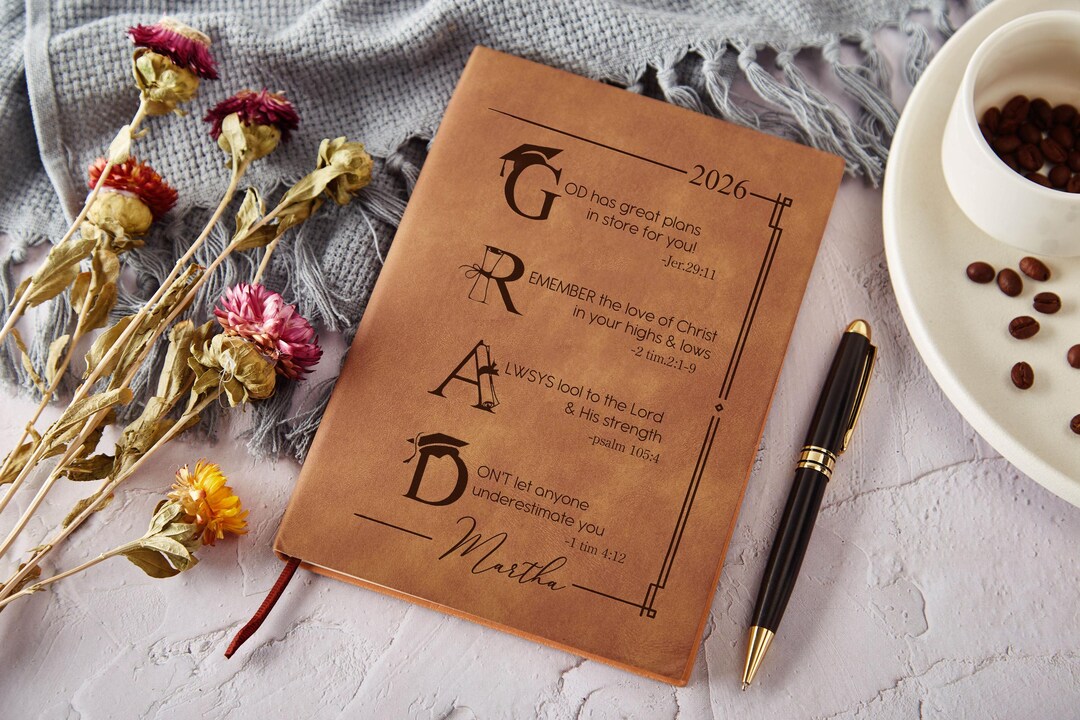 2026
GOD has great plans
in store for you!
-Jer.29:11
REMEMBER the love of Christ
in your highs & lows
-2 tim.2:1-9
ALWSYS lool to the Lord
& His strength
-psalm 105:4
DON'T let anyone
underestimate you
-1 tim 4:12
Martha